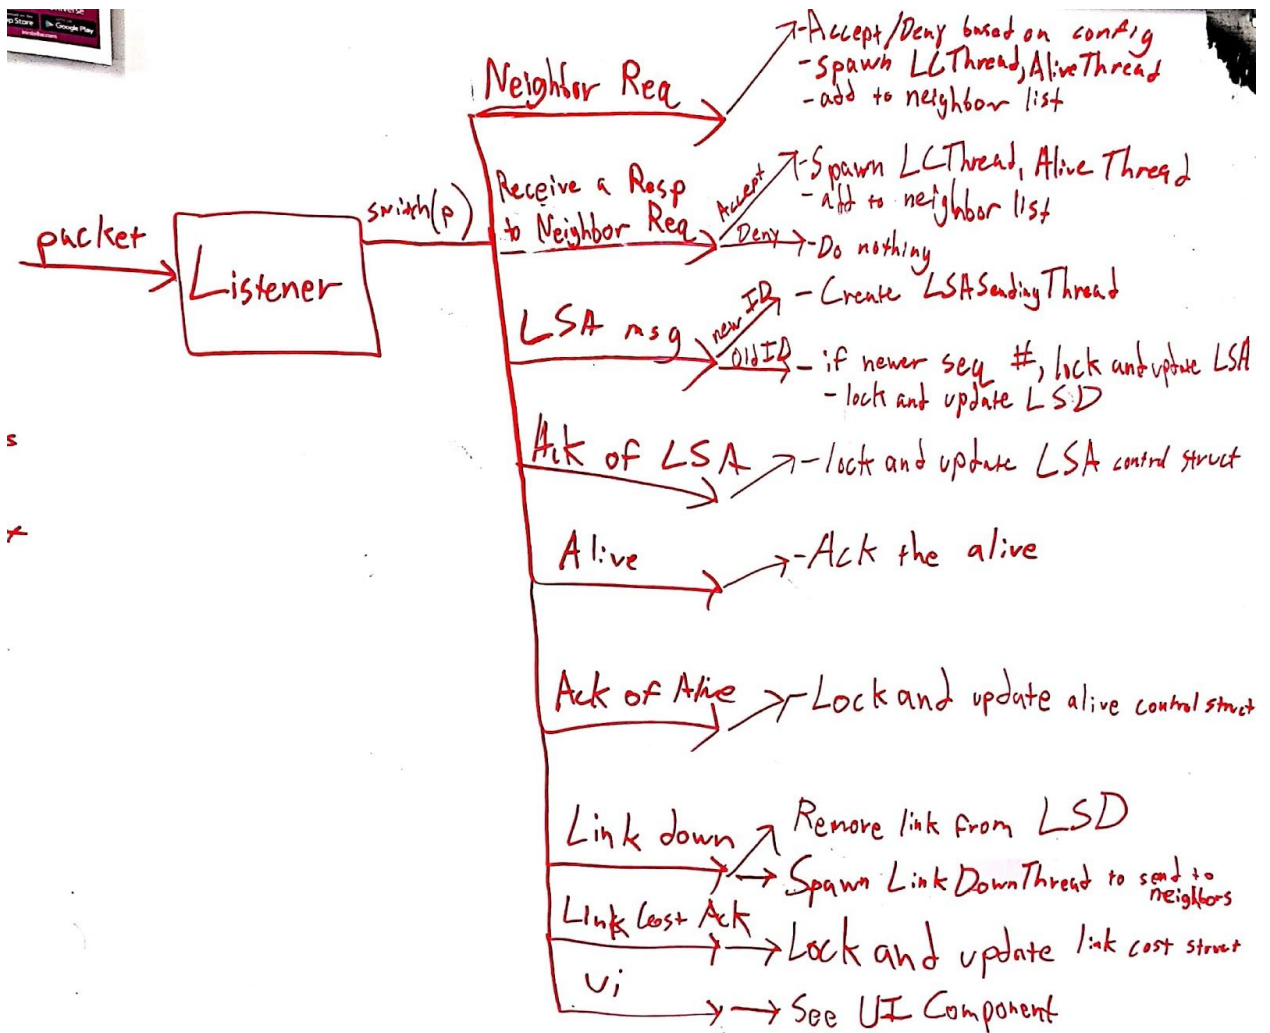 App Store
Google Play
Neighbor Req
-Accept/Deny based on config
-spawn LCThread, AliveThread
-add to neighbor list
packet
Listener
switch(p)
Receive a Resp
to Neighbor Req
Accept
-Spawn LCThread, Alive Thread
-add to neighbor list
Deny
-Do nothing
LSA msg
new ID
-Create LSASendingThread
Old ID
-if newer seq #, lock and update LSA
-lock and update LSD
s
Ack of LSA
-lock and update LSA control struct
Alive
-Ack the alive
Ack of Alive
-Lock and update alive control struct
Link down
Remove link from LSD
Spawn LinkDownThread to send to
neighbors
Link Cost Ack
Lock and update link cost struct
Ui
See UI Component